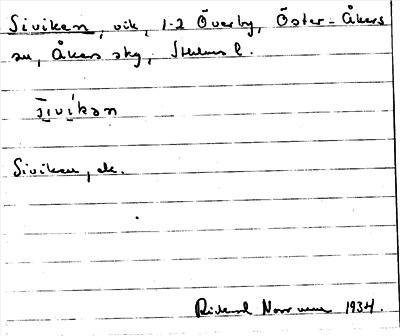 Siviken, vik, 1-2 Överby, Öster-Åkers
sn, Åkers skg, Sthlms l.
sı̄vı̀kən
Siviken, ek.
Rickard Norrman 1934.